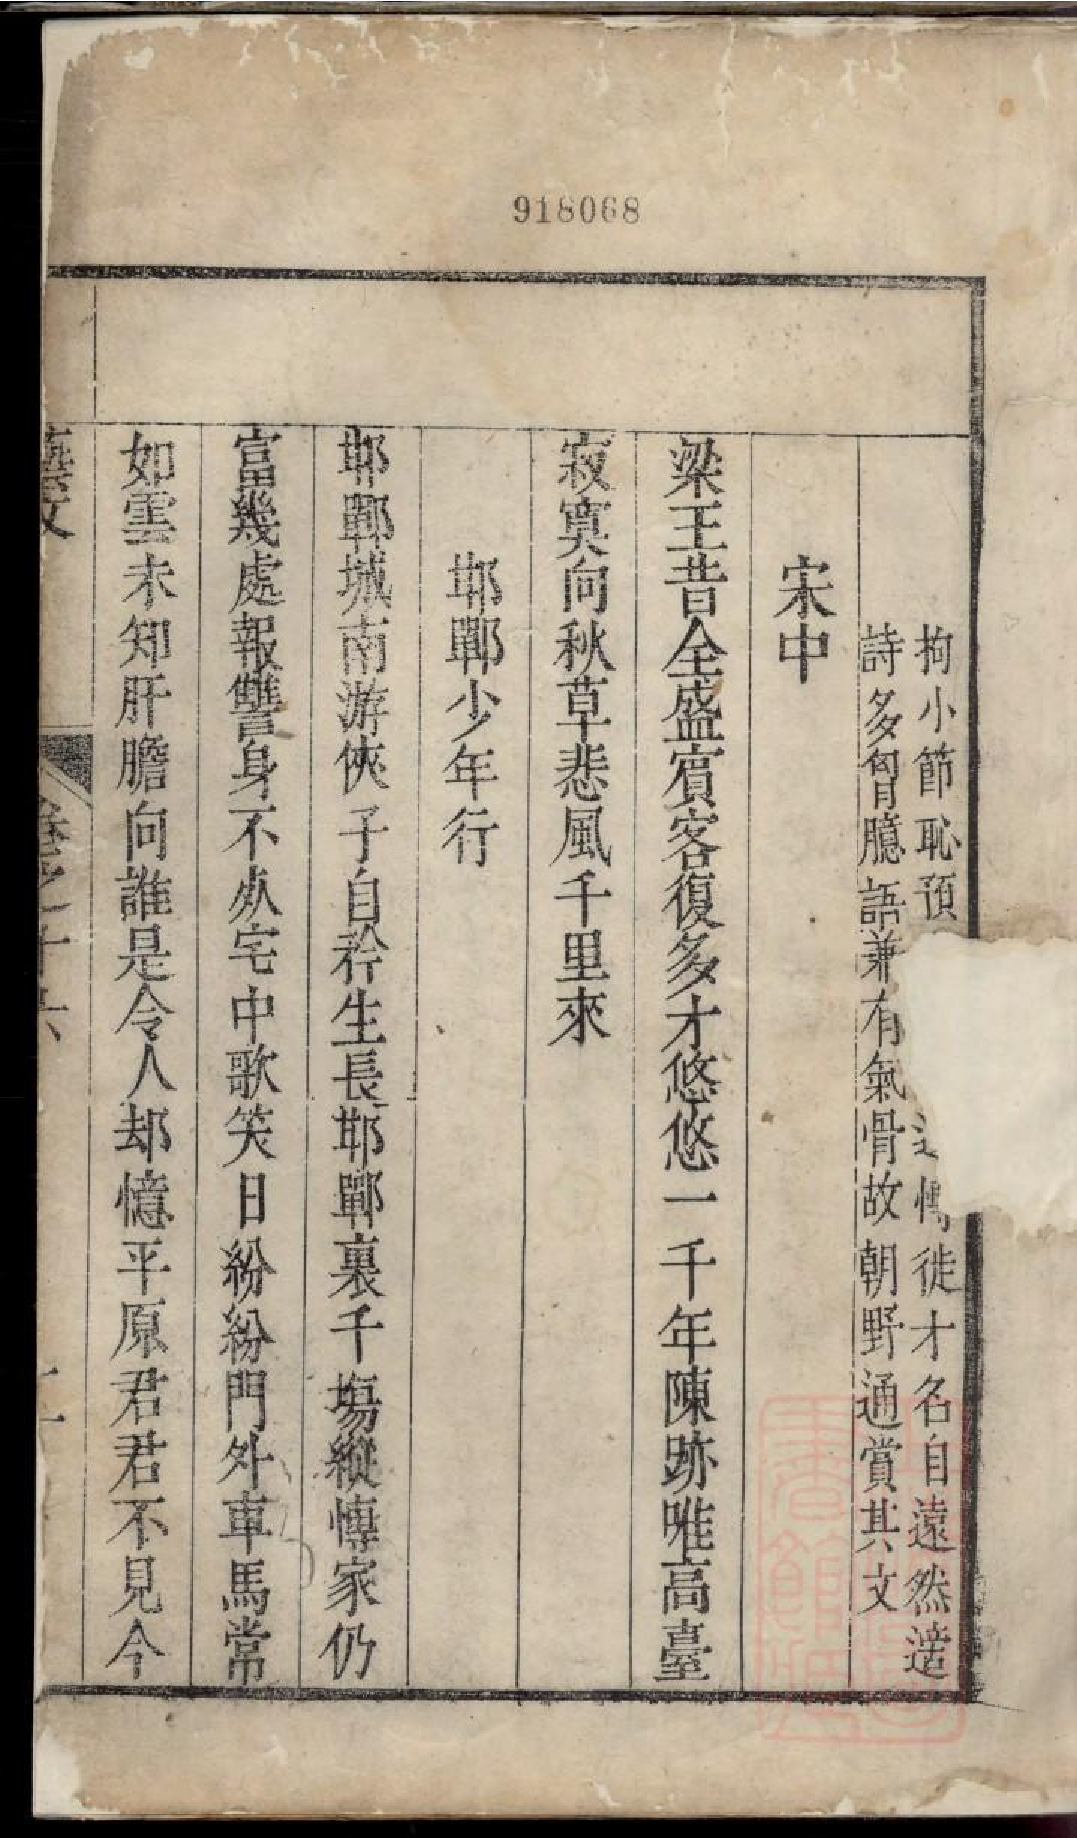 918068
拘小節恥預
慱徒才名自遠然適
詩多胷臆語兼有氣骨故朝野通賞其文
宋中
梁王昔全盛賓客復多才悠悠一千年陳跡唯高臺
寂寞向秋草悲風千里來
邯鄲少年行
邯鄲城南游俠子自矜生長邯鄲裏千塲縱慱家仍
富幾處報讐身不死宅中歌笑日紛紛門外車馬常
如雲未知肝膽向誰是令人却憶平原君君不見今
藝文
卷之十六